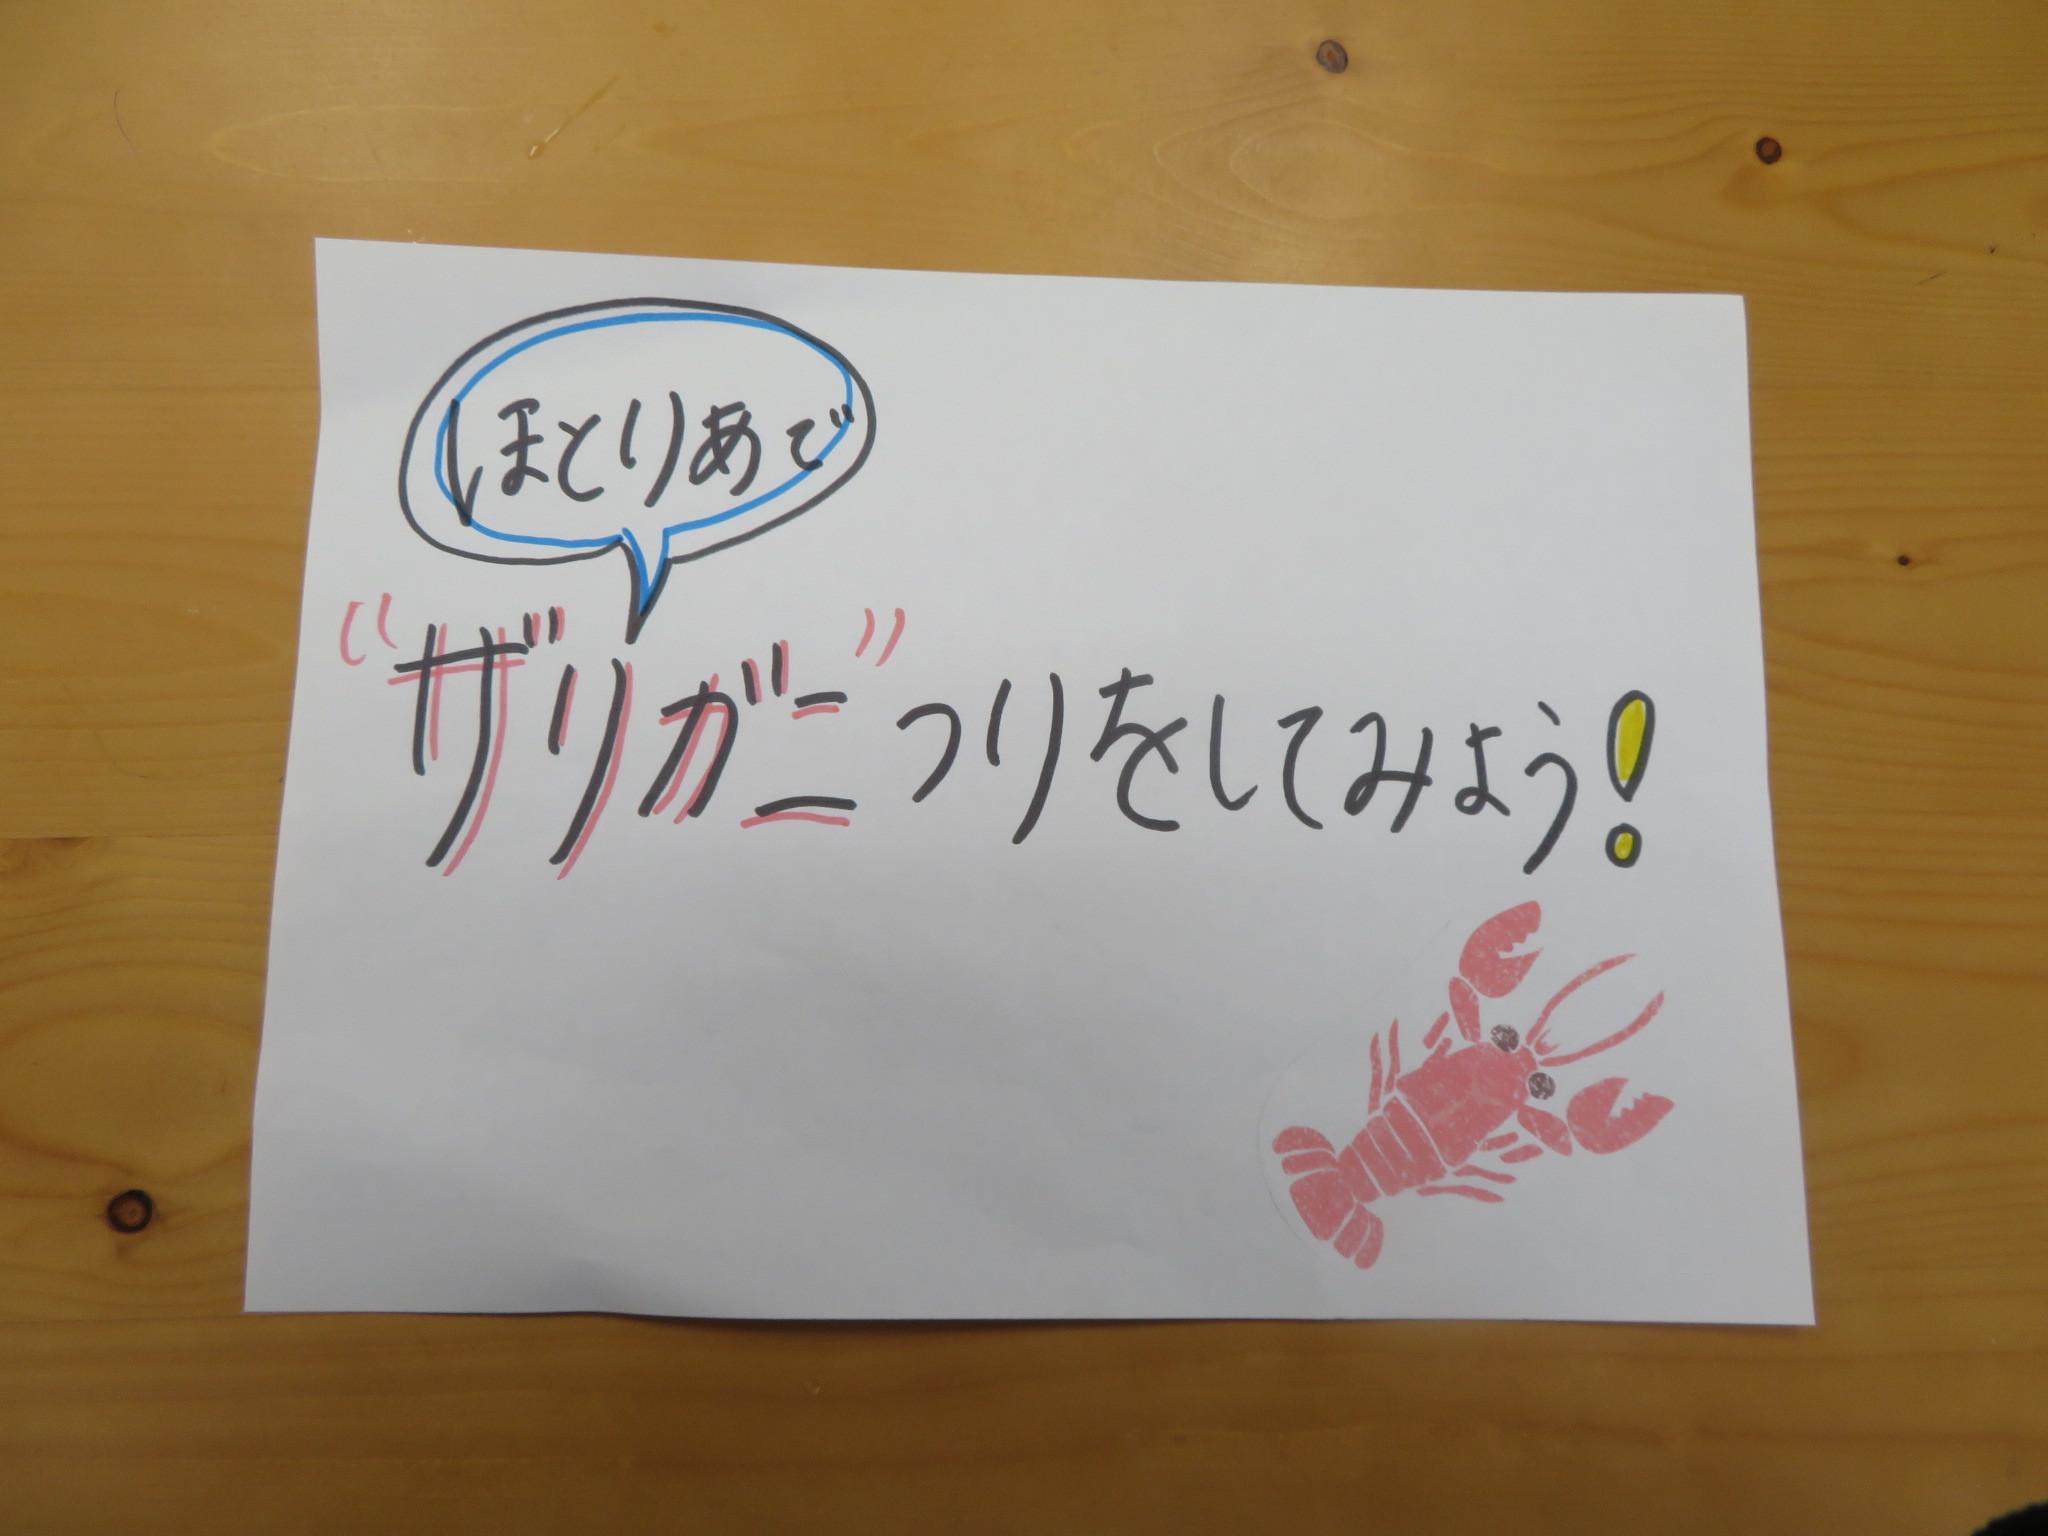 ほとりあで
“ザリガニ”つりをしてみよう!